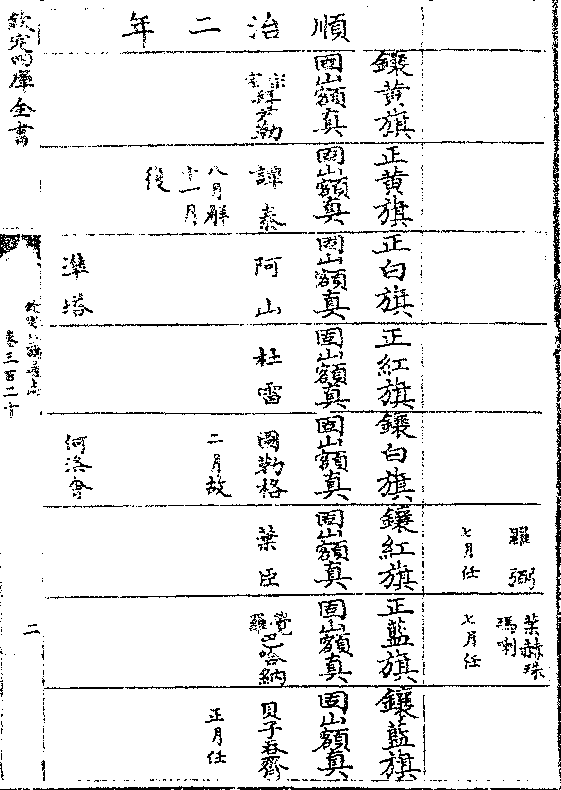 羅弼
七月任
葉赫珠
瑪喇
七月任
鑲黄旗
正黄旗
正白旗
正紅旗
鑲白旗
鑲紅旗
正藍旗
鑲藍旗
順治二年
固山額真
固山額真
固山額真
固山額真
固山額真
固山額真
固山額真
固山額真
宗室
譚泰
八月解
十一月
復
阿山
杜雷
圖勒格
二月故
葉臣
覺羅巴哈納
貝子吞齊
正月任
準塔
何洛會
欽定四庫全書
卷三百二十
二